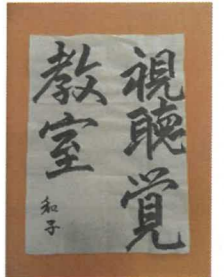 視聴覚
教室
和子